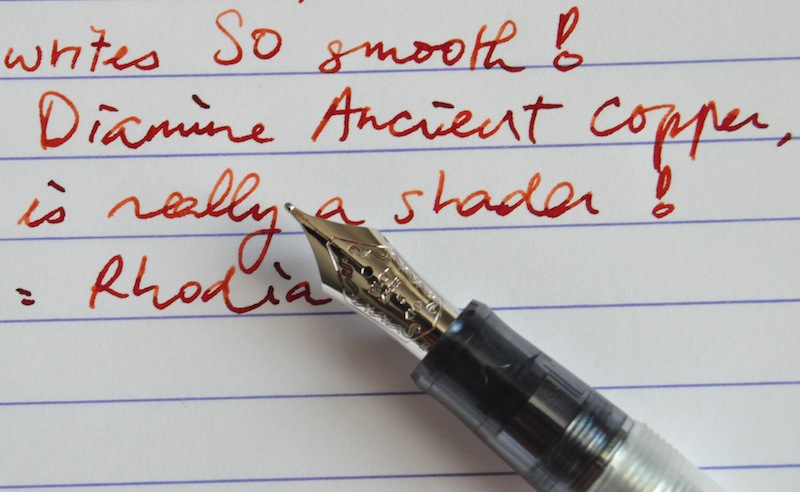 writes SO smooth!
Diamine Ancient Copper,
is really a shader!
= Rhodia